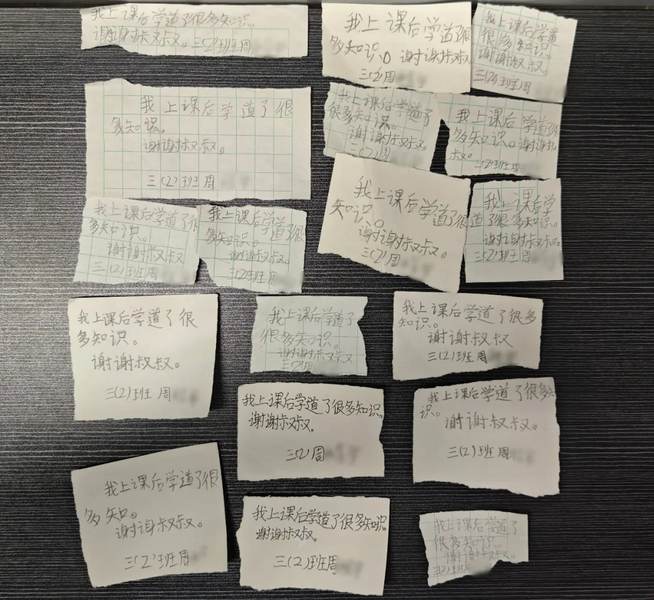 我上课后学道了很多知识。
谢谢叔叔。三(2)班周
我上课后学道了很
多知识。谢谢叔叔
三(2)周
我上课后学道
很多知识。
谢谢叔叔
三(2)班周
我上课后学道了很
多知识。
谢谢叔叔。
三(2)班周
我上课后学道了
很多知识。
谢谢叔叔。
三(2)周
我上课后学道了很
多知识。谢谢叔
叔。
三(2)班周
我上课后学道了很
多知识。
谢谢叔叔。
三(2)班周
我上课后学道了很
多知识。
谢谢叔叔。
三(2)班周
我上课后学道了很
知识。
谢谢叔叔。
三(2)周
我上课后学
道了很多知识。
谢谢叔叔。
三(2)班周
我上课后学道了很
多知识。
谢谢叔叔。
三(2)班周
我上课后学道了
很多知识。
谢谢叔叔
三(2)周
我上课后学道了很多
知识。
谢谢叔叔
三(2)班周
我上课后学道了很多知识。
谢谢叔叔。
三(2)周
我上课后学道了很多知
识。
谢谢叔叔。
三(2)班周
我上课后学道了很
多知。
谢谢叔叔。
三(2)班周
我上课后学道了很多知识。
谢谢叔叔。
三(2)班周
我上课后学道了
很多知识。
谢谢叔叔。